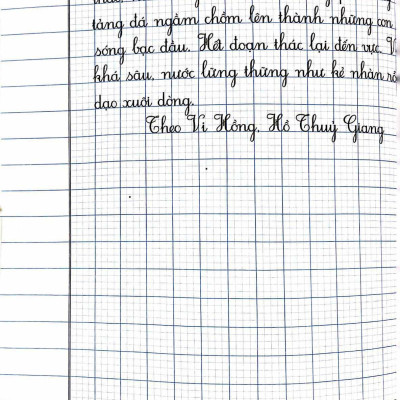 tảng đá ngầm chồm lên thành những con
sóng bạc đầu. Hết đoạn thác lại đến vực. V
khá sâu, nước lững thững như kẻ nhàn rỗ
dạo xuôi dòng.
Theo Vi Hồng, Hồ Thuỷ Giang